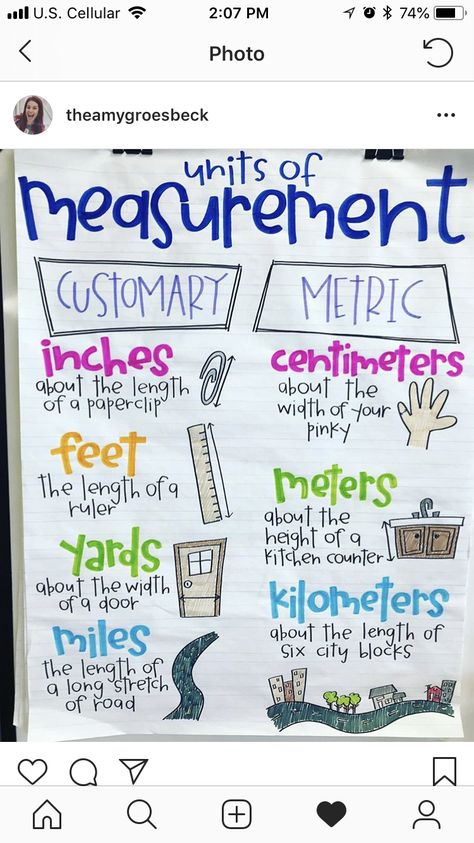 U.S. Cellular 2:07 PM 74%
Photo
theamygroesbeck
units of
measurement
CUSTOMARY
METRIC
inches
about the length
of a paperclip
feet
the length of a
ruler
yards
about the width
of a door
miles
the length of
a long stretch
of road
centimeters
about the
width of your
pinky
meters
about the
height of a
kitchen counter
kilometers
about the length of
six city blocks